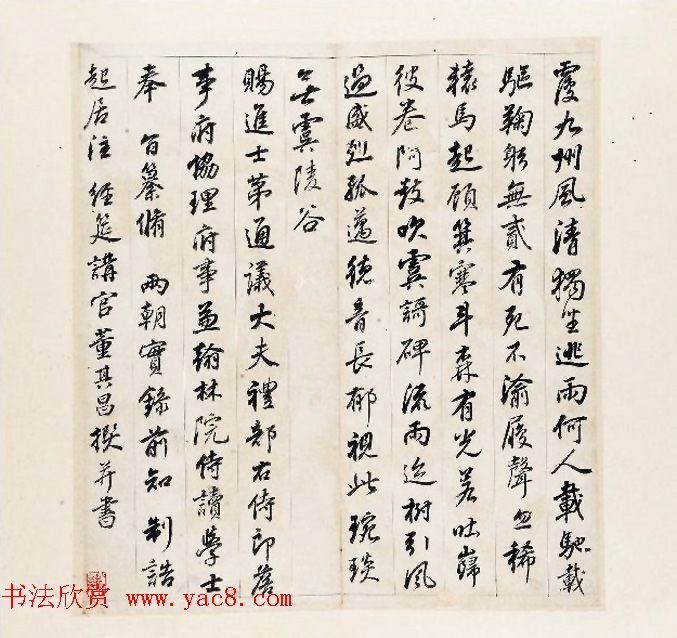 九州風清獨坐逃雨何人載馳載
驅鞠躬無貳有死不渝履聲忽稀
轅馬起顧箕寒斗森有光若吐巋
彼卷阿鼓吹虞謌碑流雨迸樹引風
過威烈孤邁德音長郁視此琬琰
無虞陵谷
賜進士第通議大夫禮部右侍郎詹
事府協理府事兼翰林院侍讀學士
奉 旨纂脩 兩朝實錄前知 制誥
起居注 經筵講官董其昌撰并書
书法欣赏 www.yac8.com